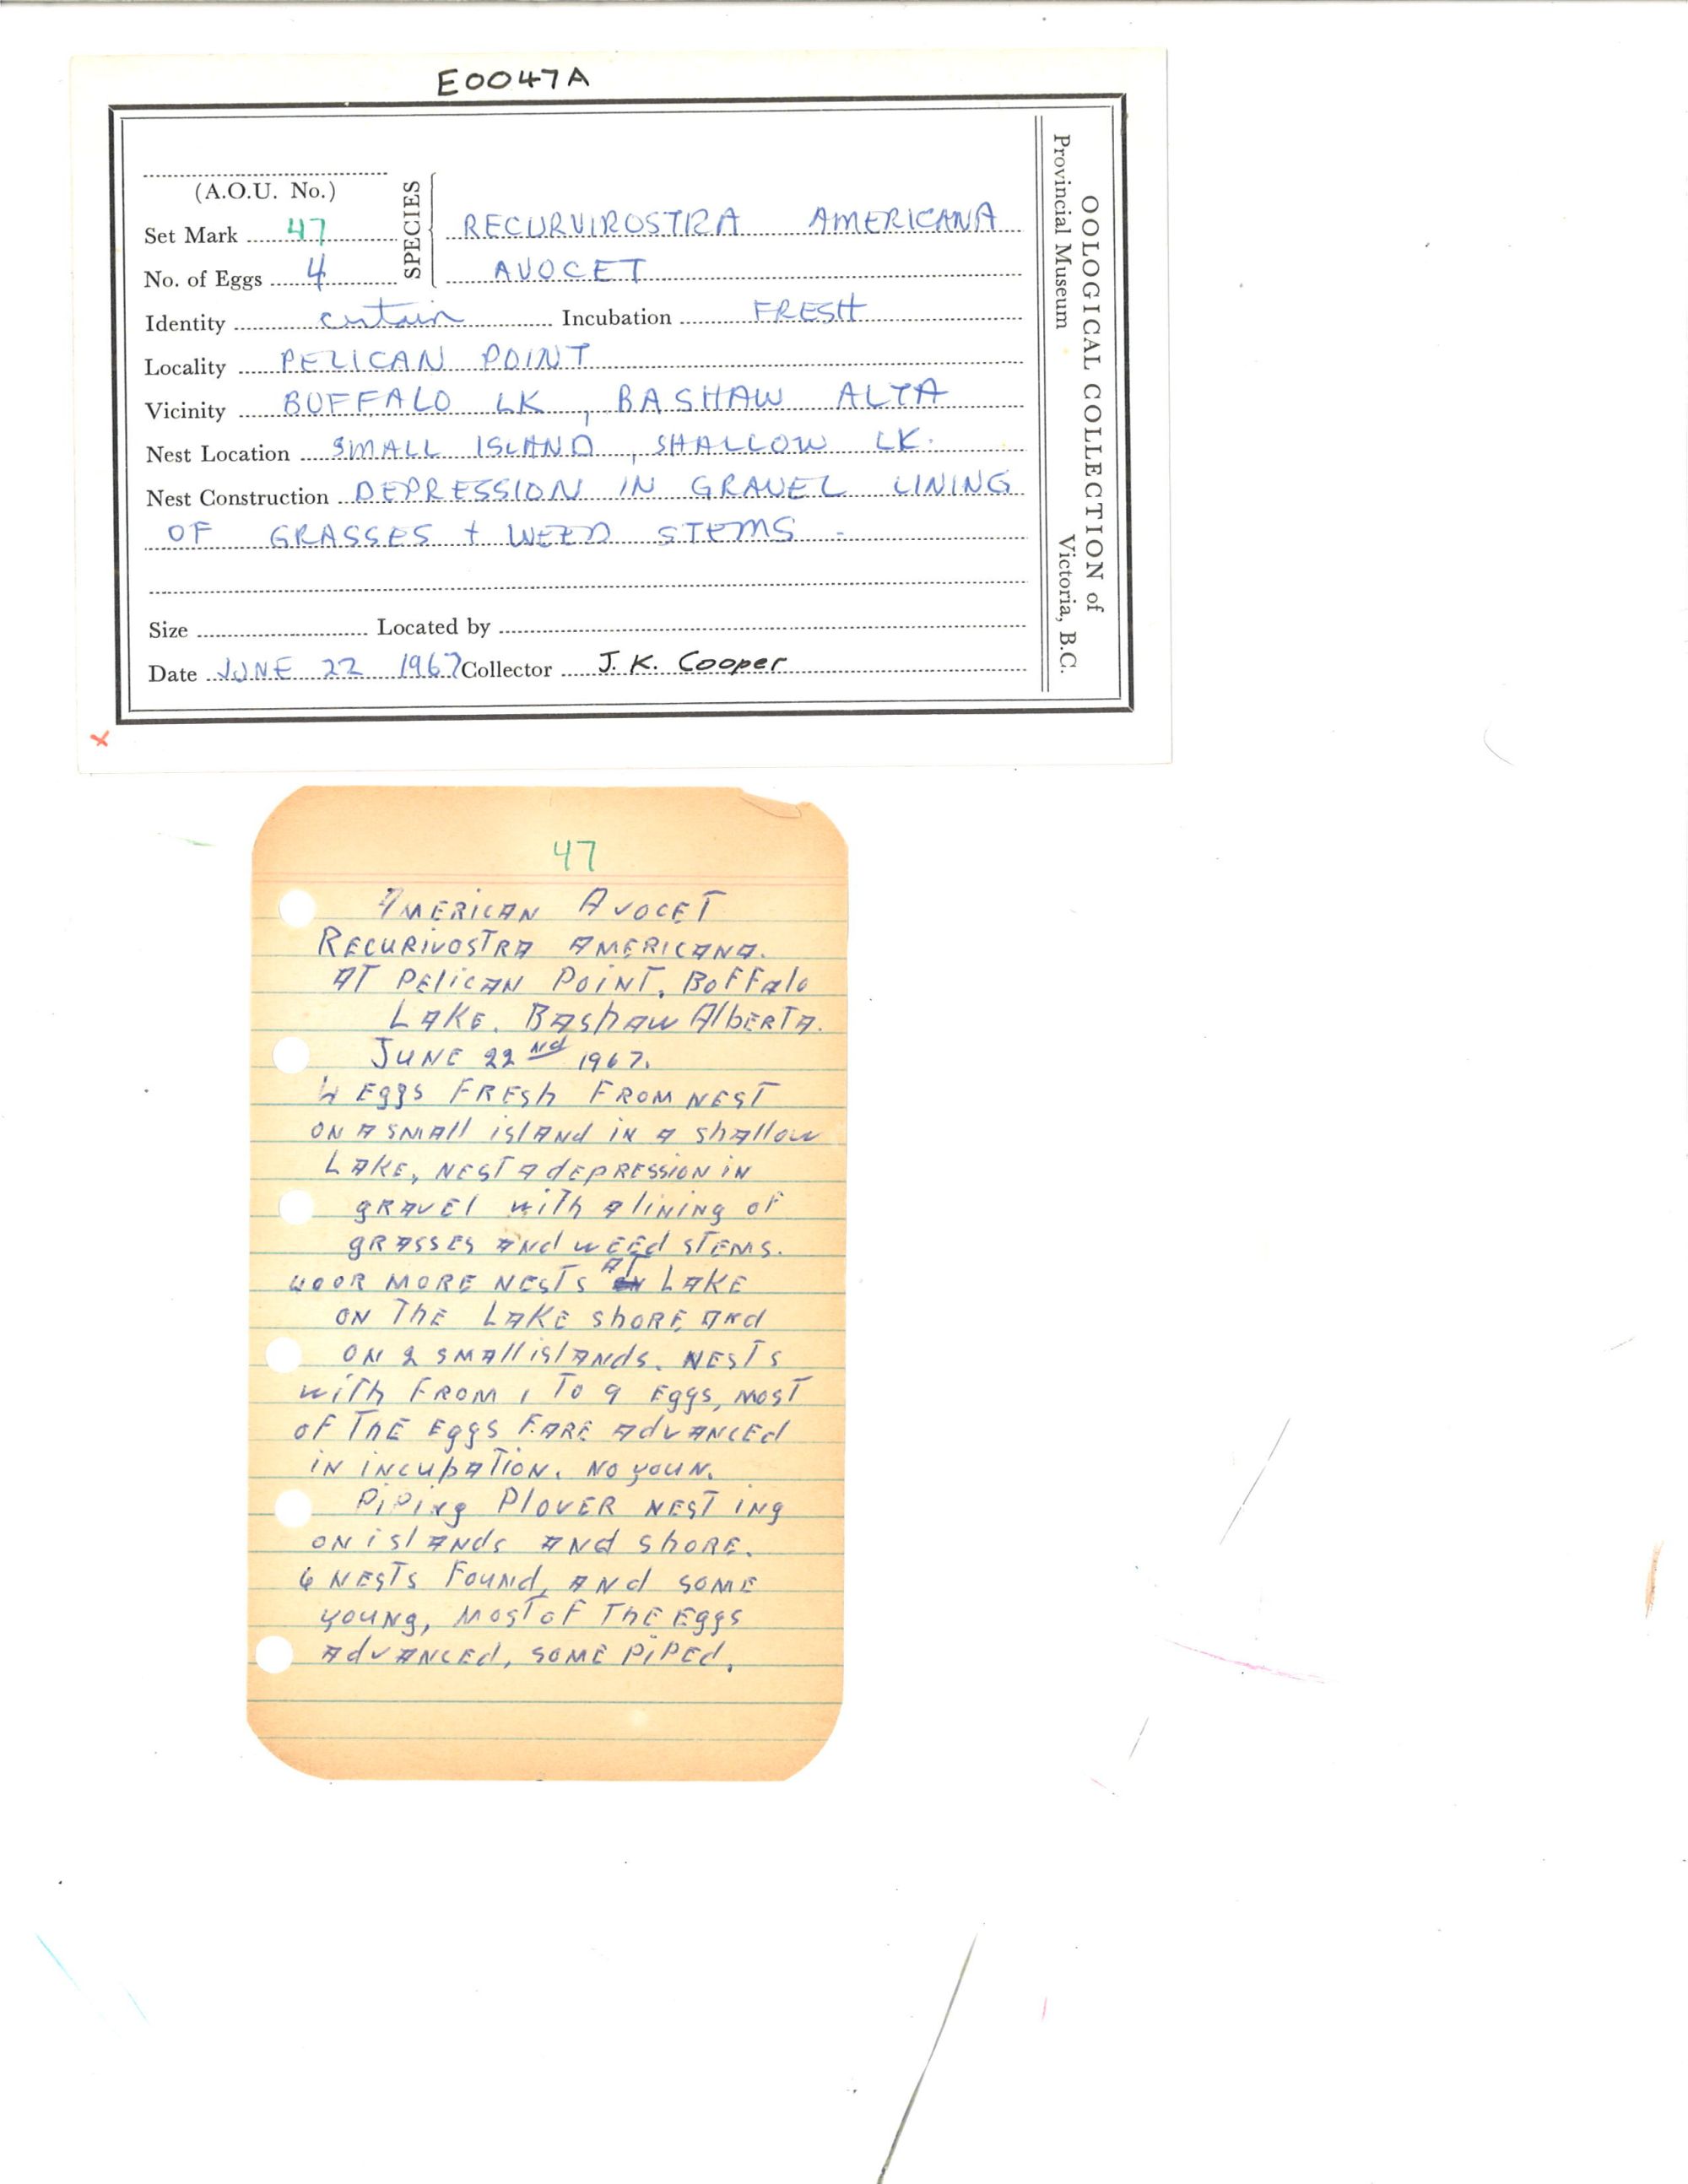 E0047A
(A.O.U. No.)
Set Mark 47
No. of Eggs 4
SPECIES
RECURVIROSTRA AMERICANA
AVOCET
Identity certain Incubation FRESH
Locality PELICAN POINT
Vicinity BUFFALO LK, BASHAW ALTA
Nest Location SMALL ISLAND, SHALLOW LK.
Nest Construction DEPRESSION IN GRAVEL LINING
OF GRASSES + WEED STEMS -
Size Located by
Date JUNE 22 1967 Collector J. K. Cooper
OOLOGICAL COLLECTION of
Provincial Museum Victoria, B.C.
x
47
AMERICAN AVOCET
RECURIVOSTRA AMERICANA.
AT PELICAN POINT. BOFFALO
LAKE. BASHAW ALBERTA.
JUNE 22ND 1967.
4 EGGS FRESH FROM NEST
ON A SMALL ISLAND IN A SHALLOW
LAKE, NEST A DEPRESSION IN
GRAVEL WITH A LINING OF
GRASSES AND WEED STEMS.
40 OR MORE NESTS AT LAKE
ON THE LAKE SHORE AND
ON 2 SMALL ISLANDS. NESTS
WITH FROM 1 TO 9 EGGS, MOST
OF THE EGGS FARE ADVANCED
IN INCUBATION. NO YOUN.
PIPING PLOVER NESTING
ON ISLANDS AND SHORE.
6 NESTS FOUND, AND SOME
YOUNG, MOST OF THE EGGS
ADVANCED, SOME PIPED.